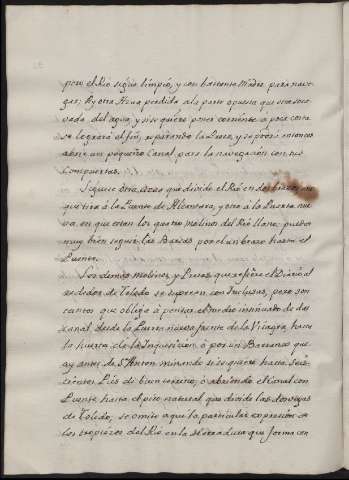 pero el Rio sigue limpio, y con bastante Madre para nave-
gar; Ay otra Azua perdida ala parte opuesta que esta soca-
vada del agua, y si se quiere poner corriente a poca costa
se lograrà el fin, reparando la Presa, y se podrà entonces
abrir un pequeño Canal para la navegacion con sus
Compuertas.
Sigue otra que divide el Rio en dos brazos,
que tira à la Puente de Alcantara, y otro à la Puerta nue-
va, en que estan los quatro molinos del Rio llano, pueden
muy bien seguir las Barcas por el un brazo hasta el
Puente.
Los demas molinos, y Presas que refiere el Diario al
rededor de Toledo se superan con Inclusas, pero son
tantos que obligò à pensar el medio insinuado de dar
canal desde la Puerta nueva frente de la Vicagra hasta
la huerta de la Inquisicion, ò por un Barranco que
ay antes de Sn. Anton minando si se quiere hasta seis-
cientos Pies de buen terreno, ò abriendo el Canal con
Puente hasta el piso natural que divide las dos vegas
de Toledo; se omite aqui la particular expresion de
los tropiezos del Rio en la erradura que forma con